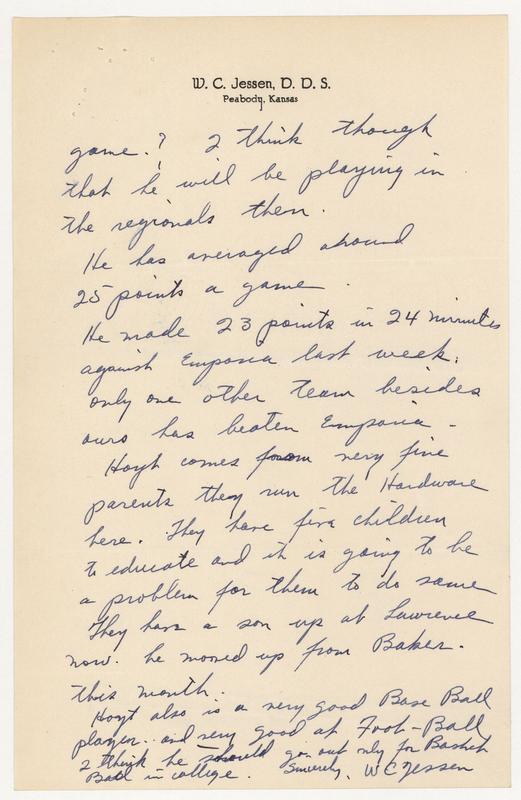 W. C. Jessen, D. D. S.
Peabody, Kansas
game.? I think though
that he will be playing in
the regionals then.
He has averaged around
25 points a game.
He made 23 points in 24 minutes
against Emporia last week.
only one other team besides
ours has beaten Emporia -
Hoyt comes from very fine
parents they run the Hardware
here. They have five children
to educate and it is going to be
a problem for them to do same
They have a son up at Lawrence
now. he moved up from Baker.
this month.
Hoyt also is a very good Base Ball
player.. and very good at Foot-Ball
I think he should go out only for Basket
Ball in college. Sincerely, W C Jessen